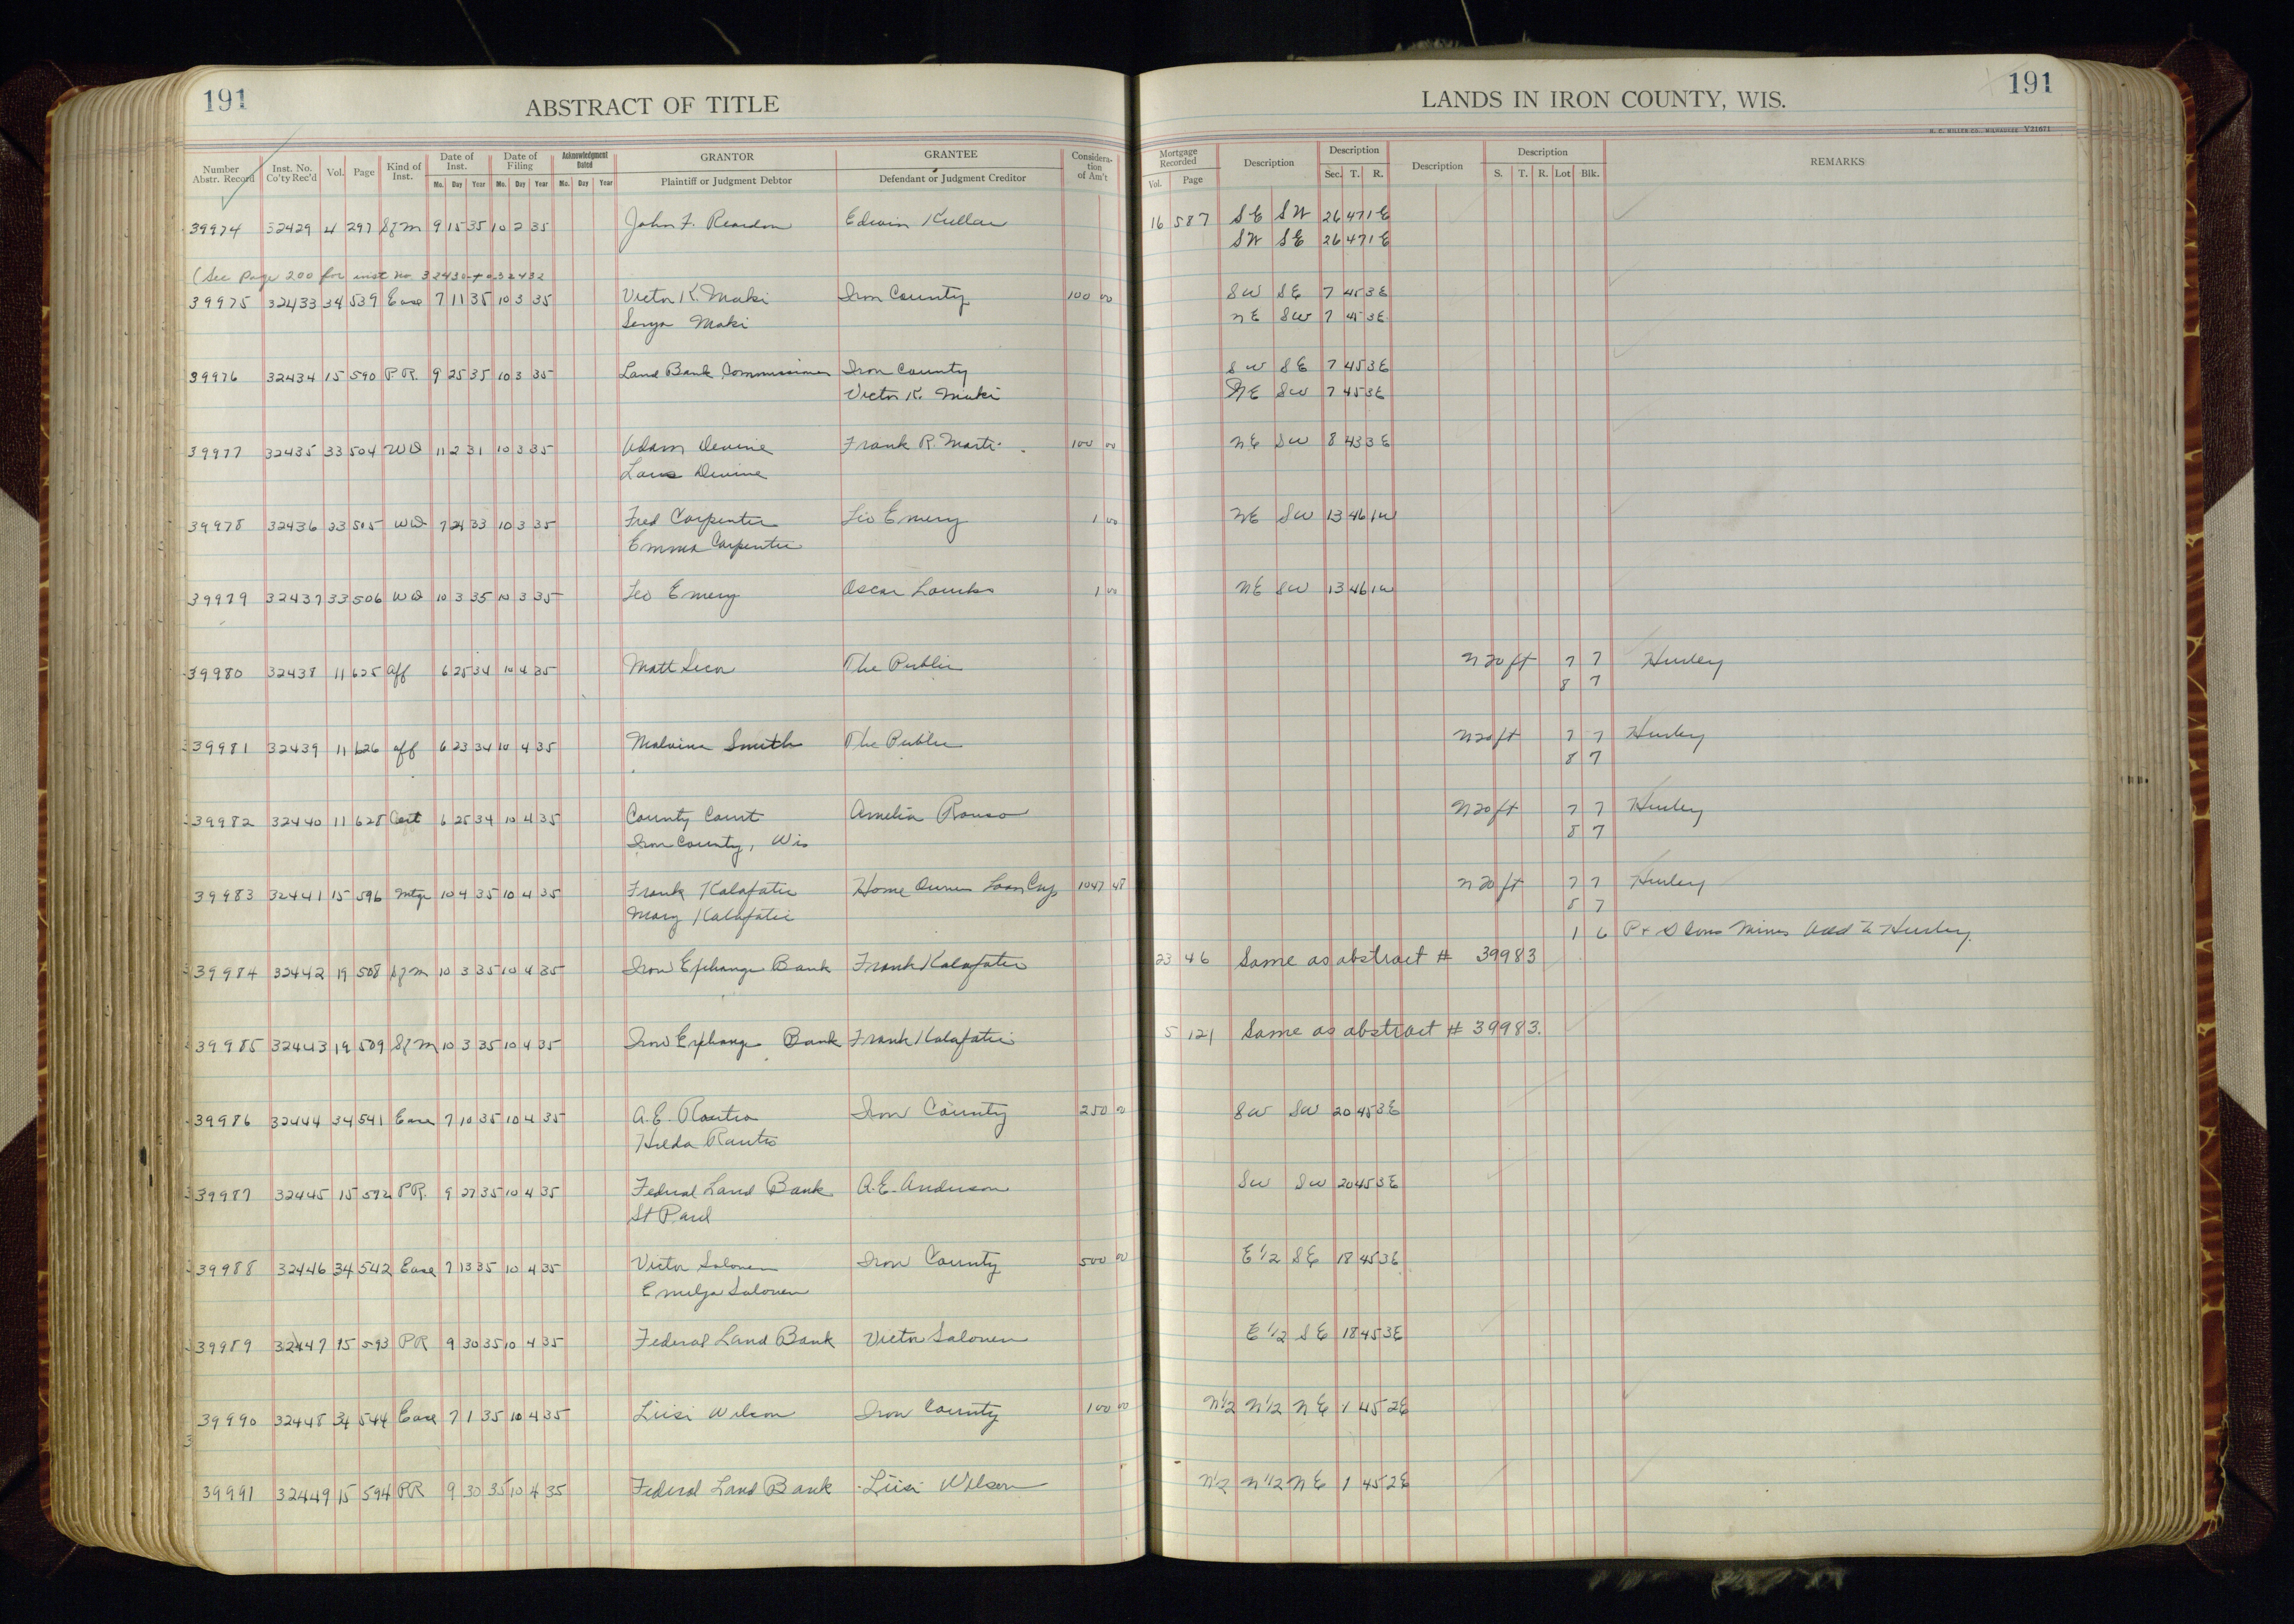 191
ABSTRACT OF TITLE
LANDS IN IRON COUNTY, WIS.
191
H. C. MILLER CO., MILWAUKEE Y21671
Number Abstr. Record Inst. No. Co'ty Rec'd Vol. Page Kind of Inst. Date of Inst. Mo. Day Year Date of Filing Mo. Day Year Acknowledgment Dated Mo. Day Year GRANTOR Plaintiff or Judgment Debtor GRANTEE Defendant or Judgment Creditor Consideration of Am't Mortgage Recorded Vol. Page Description Description Sec. T. R. Description Description S. T. R. Lot Blk. REMARKS
39974 32429 4 297 Sf M 9 15 35 10 2 35 John F. Reardon Edwin Kullar 16 587 SE SW 26 47 1E
SW SE 26 47 1E
(See page 200 for inst no 32430 to 32432
39975 32433 34 539 Ease 7 11 35 10 3 35 Victor K. Maki Iron County 100 00 SW SE 7 45 3E
Senya Maki NE SW 7 45 3E
39976 32434 15 590 P.R. 9 25 35 10 3 35 Land Bank Commissioner Iron County SW SE 7 45 3E
Victor K. Maki NE SW 7 45 3E
39977 32435 33 504 WD 11 2 31 10 3 35 Adam Devine Frank R. 100 00 NE SW 8 43 3E
Devine
39978 32436 33 505 WD 7 24 33 10 3 35 Fred Carpenter Leo Emery 1 00 NE SW 13 46 1W
Emma Carpenter
39979 32437 33 506 WD 10 3 35 10 3 35 Leo Emery Oscar 1 00 NE SW 13 46 1W
39980 32438 11 625 Aff 6 25 34 10 4 35 Matt The Public N 20 ft 7 7 Hurley
8 7
39981 32439 11 626 Aff 6 23 34 10 4 35 Malvina Smith The Public N 20 ft 7 7 Hurley
8 7
39982 32440 11 628 Cert 6 25 34 10 4 35 County Court Amelia N 20 ft 7 7 Hurley
Iron County, Wis 8 7
39983 32441 15 596 Mtge 10 4 35 10 4 35 Frank Kalafatic Home Owners Loan Corp 1047 48 N 20 ft 7 7 Hurley
Mary Kalafatic 8 7
1 6 P + D Cons Mines Add to Hurley.
39984 32442 19 508 Sf M 10 3 35 10 4 35 Iron Exchange Bank Frank Kalafatic 23 46 Same as abstract # 39983
39985 32443 19 509 Sf M 10 3 35 10 4 35 Iron Exchange Bank Frank Kalafatic 5 121 Same as abstract # 39983.
39986 32444 34 541 Ease 7 10 35 10 4 35 A. E. Rautio Iron County 250 00 SW SW 20 45 3E
Hilda Rautio
39987 32445 15 592 P.R. 9 27 35 10 4 35 Federal Land Bank A. E. Anderson SW SW 20 45 3E
St Paul
39988 32446 34 542 Ease 7 13 35 10 4 35 Victor Salonen Iron County 500 00 E 1/2 SE 18 45 3E
Emelya Salonen
39989 32447 15 593 PR 9 30 35 10 4 35 Federal Land Bank Victor Salonen E 1/2 SE 18 45 3E
39990 32448 34 544 Ease 7 1 35 10 4 35 Liisi Wilson Iron County 100 00 N1/2 N1/2 NE 1 45 2E
39991 32449 15 594 PR 9 30 35 10 4 35 Federal Land Bank Liisi Wilson N1/2 N1/2 NE 1 45 2E